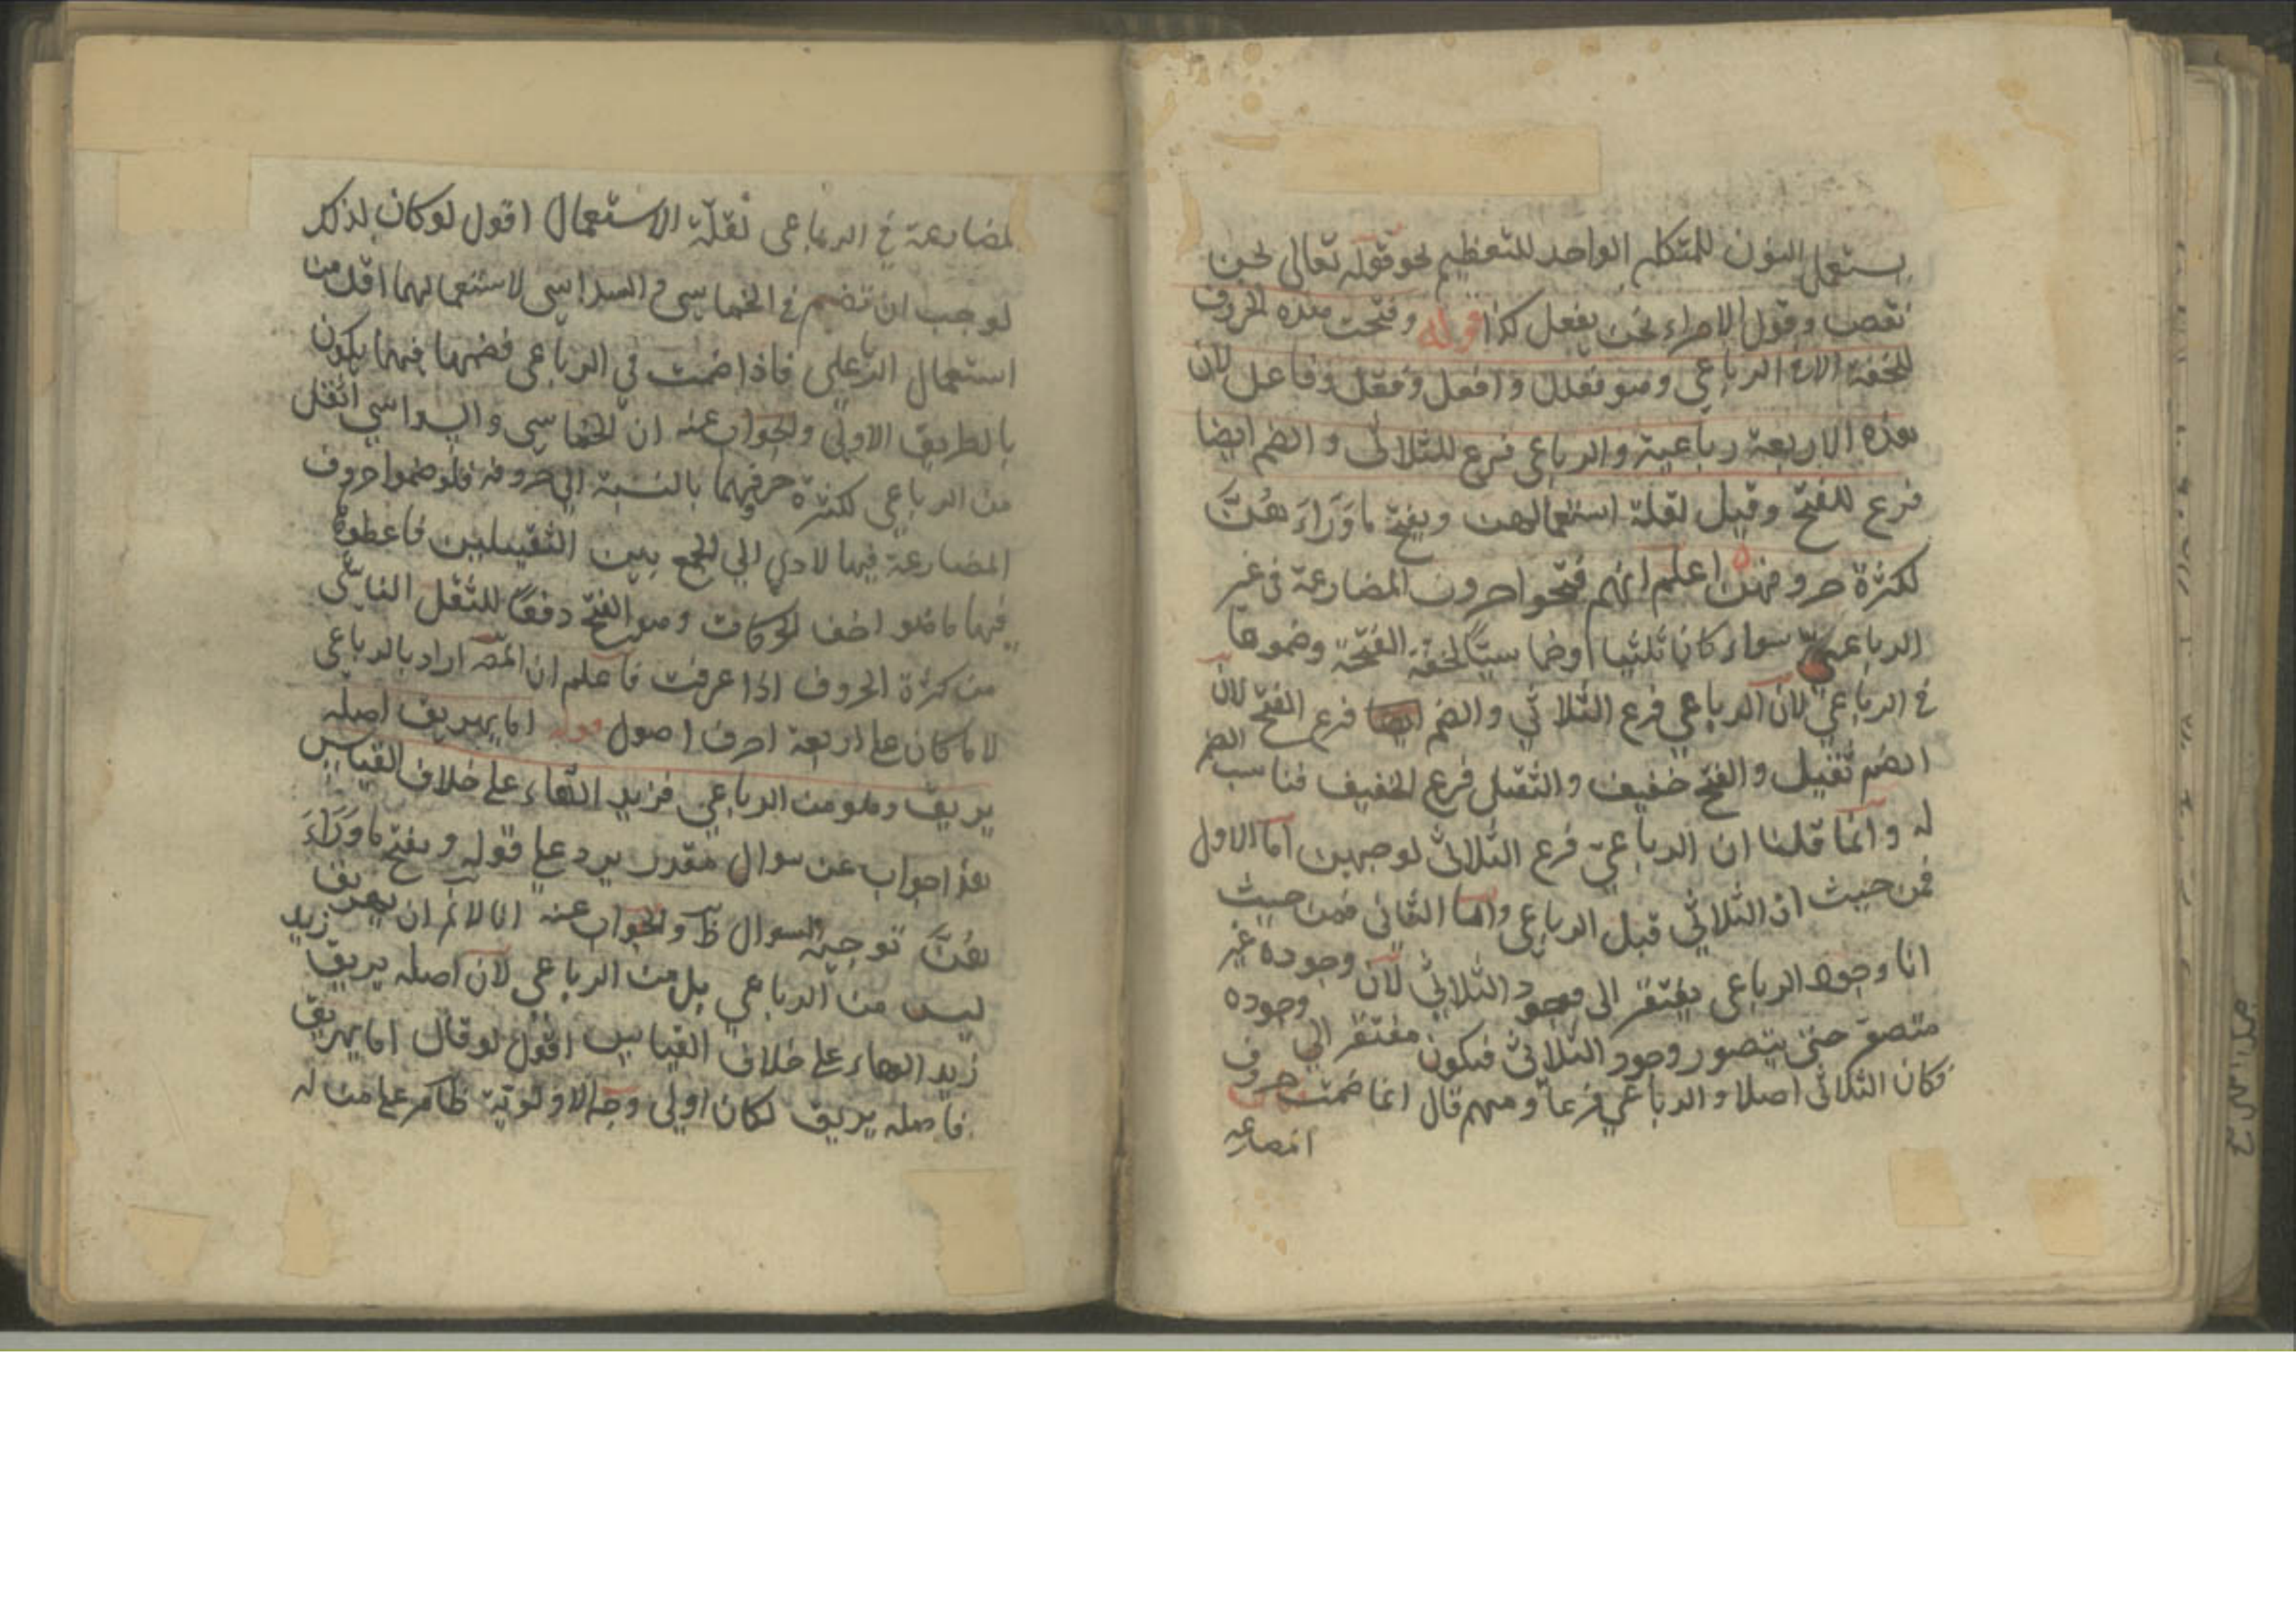 يستعمل النون للمتكلم الواحد للتعظيم نحو قوله تعالى نحن
نقص وقول الامراء نحن نفعل كذا قوله وفتحت هذه الحروف
للخفة الا في الرباعي وهو فعلل و افعل وفعّل وفاعل لان
هذه الاربعة رباعية والرباعى فرع للثلاثى و الضم ايضا
فرع للفتح وقيل لقلة استعمالهن ويفتح ماوَرَاءَ هُنَّ
لكثرة حروفهن اعلم انهم فتحوا حروف المضارعة فى غير
الرباعى سواء كان ثلثيا اوخماسيّا لخفة الفتحة وضموها
في الرباعي لان الرباعي فرع الثلاثي والضم فرع الفتح لان
الضم ثقيل والفتح خفيف والثقيل فرع الخفيف فناسب الضم
له وانما قلنا ان الرباعي فرع الثلاثى لوجهين اما الاول
فمن حيث ان الثلاثي قبل الرباعى واما الثانى فمن حيث
انا وجود الرباعى يفتقر الى وجود الثلاثي لان وجوده غير
متصور حتى يتصور وجود الثلاثى فيكون مفتقر الي وجوده
فكان الثلاثى اصلا والرباعي فرعا ومنهم قال انما ضمت حروف
المضارعة
لمضارعة في الرباعى لقلّة الاستعمال اقول لوكان لذلك
لوجب ان تضم في الخماسى و السداسى لاستعمالهما اقل من
استعمال الرباعى فاذا ضمت في الرباعى فضمها فيهما يكون
بالطريق الاولى والجواب عنه ان الخماسى و السداسي اثقل
من الرباعي لكثرة حروفهما بالنسبة الي حروفه فلو ضموا حروف
المضارعة فيها لادي الي الجمع بين الثقيلين فاعطوا
فيهما ماهو اخف الحركات وهو الفتح دفعًا للثقل الناشى
من كثرة الحروف اذا عرفت فاعلم ان المص اراد بالرباعى
لا ماكان على اربعة احرف اصول قوله اما يهريق اصله
يريق وهو من الرباعي فزيد الهاء على خلاف القياس
هذا جواب عن سوال مقدر يرد على قوله ويفتح ماوَرَاءَ
هُنَّ توجيه السوال ظ والجواب عنه انا لانم ان يهريق
ليس من الرباعي بل من الرباعي لان اصله يريق زيد
زيد الهاء على خلاف القياس اقول لو قال اما يهريق
فاصله يريق لكان اولى وجه الاولوية ظاهر على من له